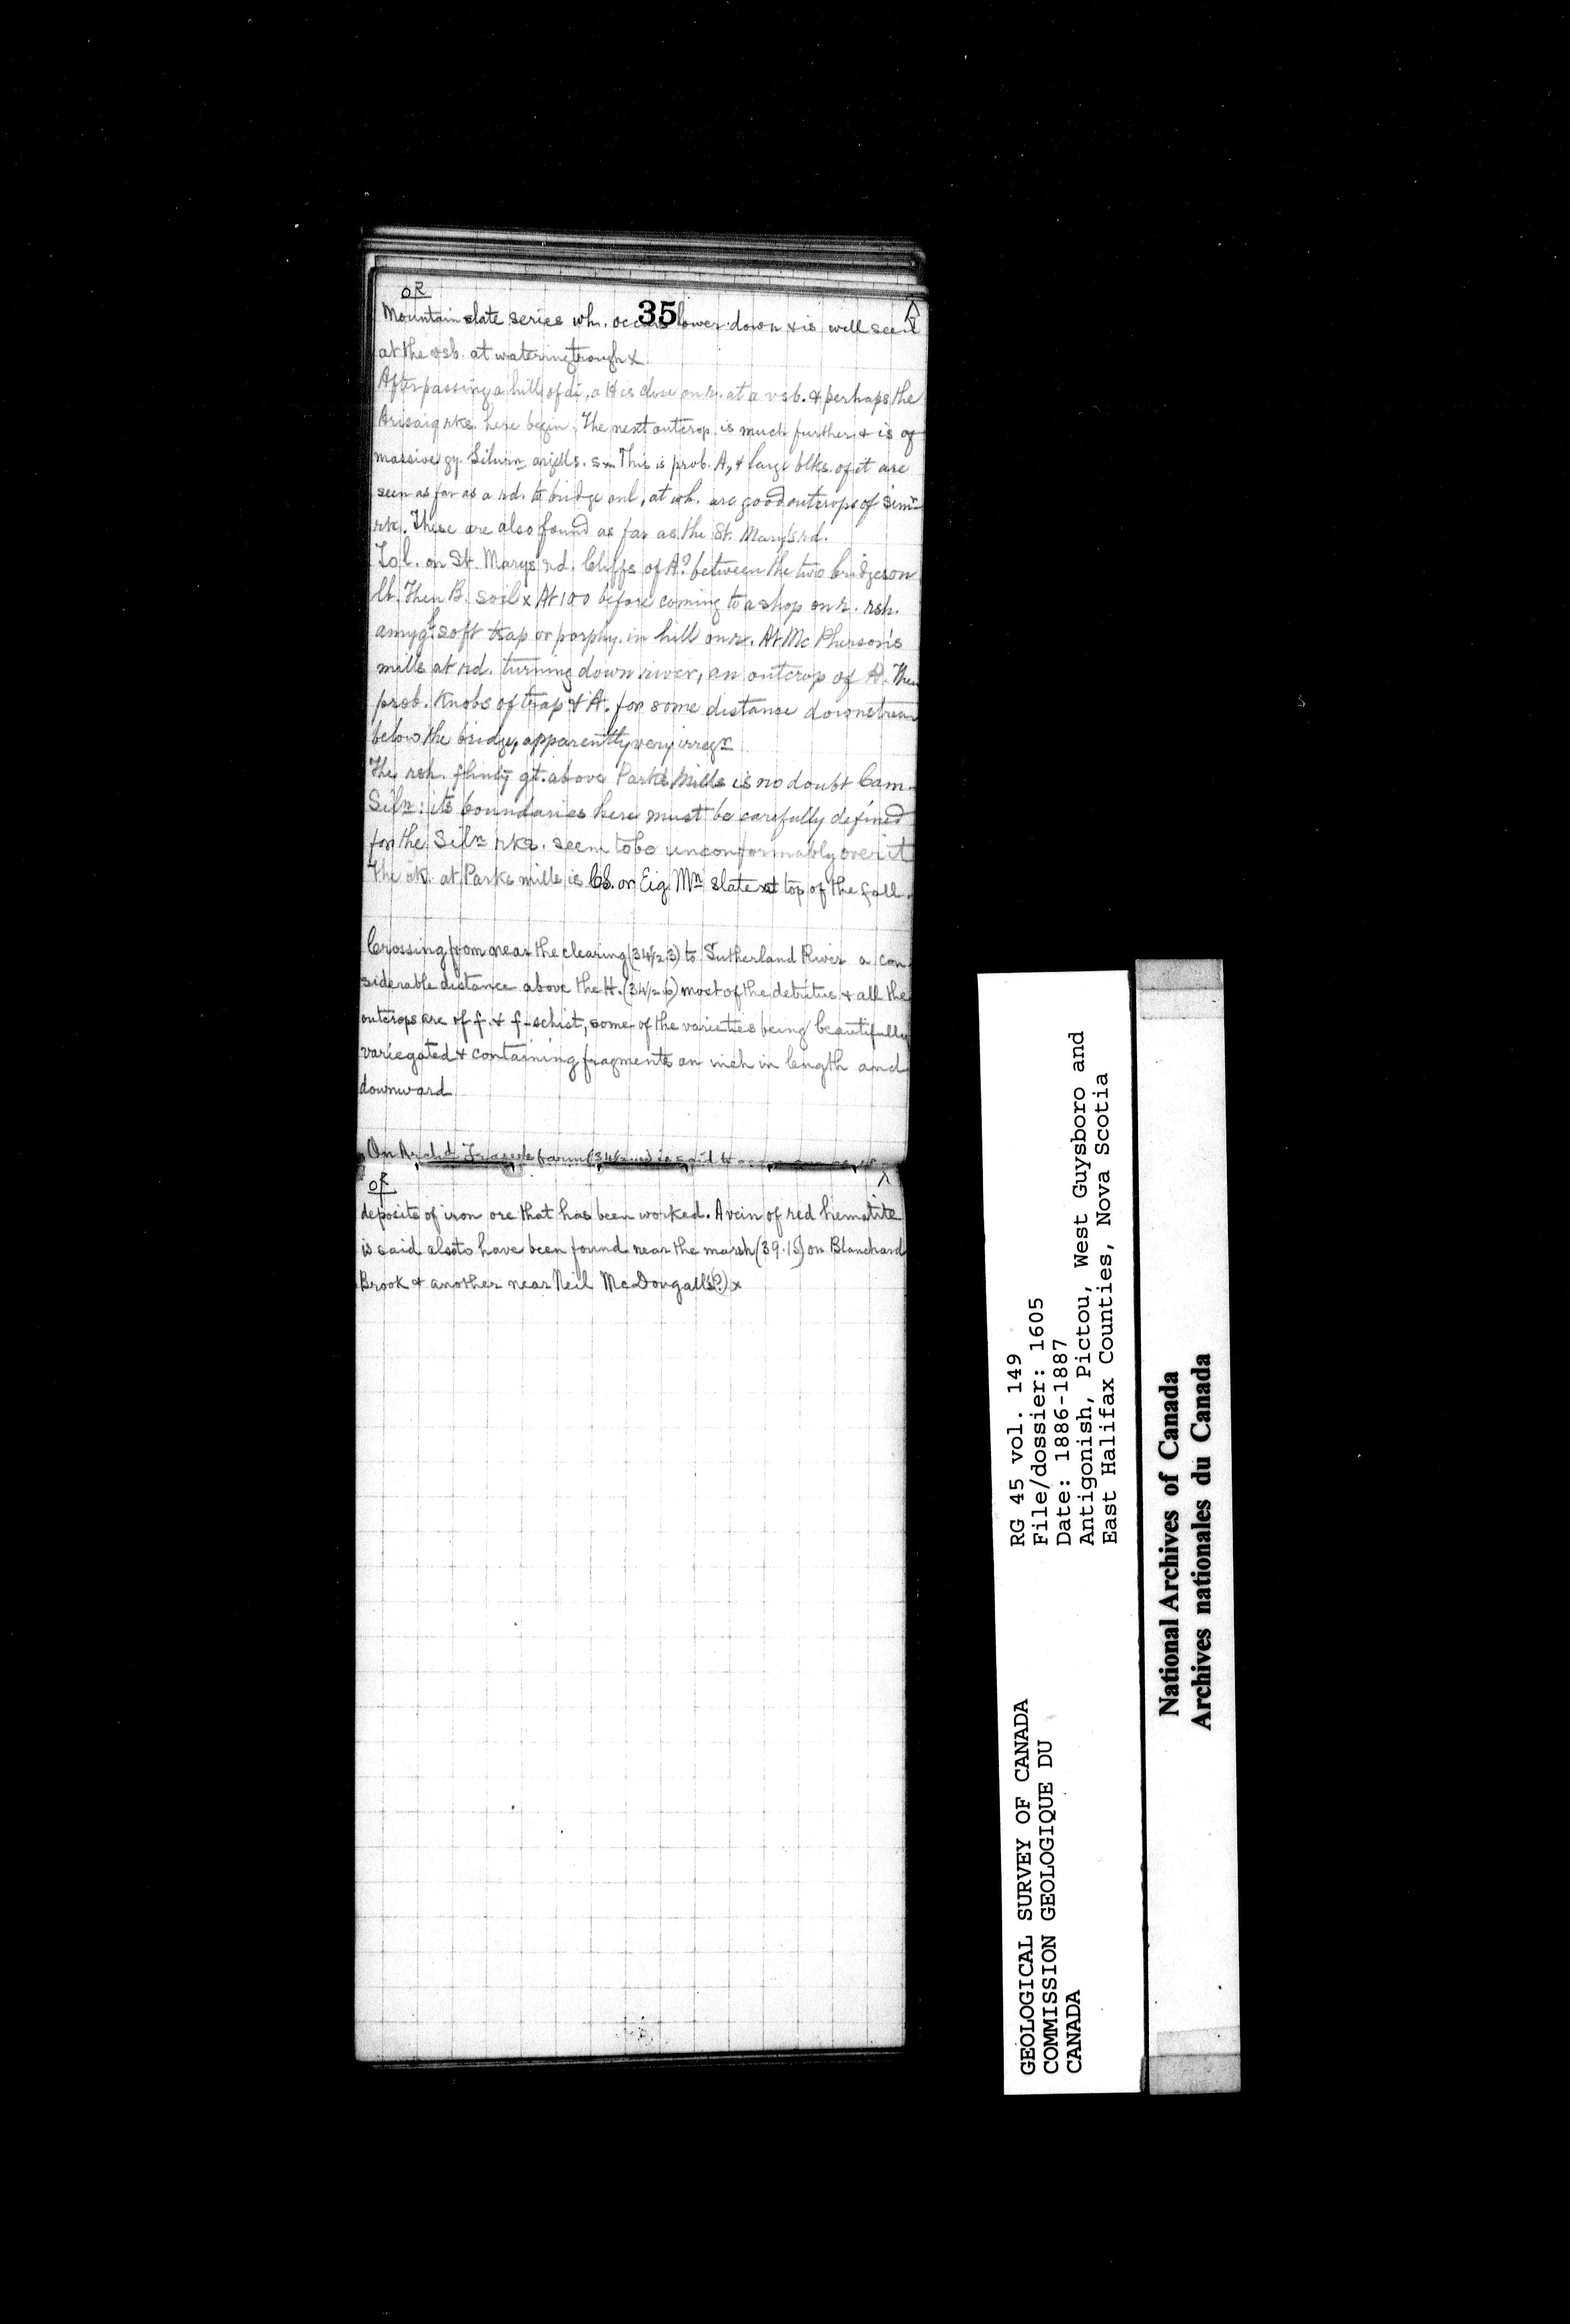 OR
35
Mountain slate series wh. occurs lower down & is well seen
at the vsb. at watering trough x
After passing a hill of di, a H is close on r. at a vsb. & perhaps the
Arisaig rks. here begin. The next outcrop is much further & is of
massive gy. Silurn. argills. s x. This is prob. A, & large blks. of it are
seen as far as a rd. to bridge on l, at wh. are good outcrops of simr
rk. These are also found as far as the St. Mary's rd.
To l. on St. Marys rd. Cliffs of A? between the two bridges on
lt. Then B. soil x At 100 before coming to a shop on r. rsh.
amygl. soft trap or porphy. in hill on r. At McPherson's
mills at rd. turning down river, an outcrop of A. Then
prob. knobs of trap & A. for some distance downstream
below the bridge, apparently very irregr
The rsh. flinty qt. above Parks Mills is no doubt Cam-
Siln: its boundaries here must be carefully defined
for the Siln rks. seem to be unconformably over it
The rk. at Parks mills is CS. or Eig Mn slate at top of the fall.
Crossing from near the clearing (34½.3) to Sutherland River a con
siderable distance above the H. (34½.6) most of the detritus & all the
outcrops are of f. & f-schist, some of the varieties being beautifully
variegated & containing fragments an inch in length and
downward
On Archd. Fraser's farm is said to
OR
deposite of iron ore that has been worked. A vein of red hematite
is said also to have been found near the marsh (39.15) on Blanchard
Brook & another near Neil McDougalls(?) x
RG 45 vol. 149
File/dossier: 1605
Date: 1886-1887
Antigonish, Pictou, West Guysboro and
East Halifax Counties, Nova Scotia
GEOLOGICAL SURVEY OF CANADA
COMMISSION GEOLOGIQUE DU
CANADA
National Archives of Canada
Archives nationales du Canada